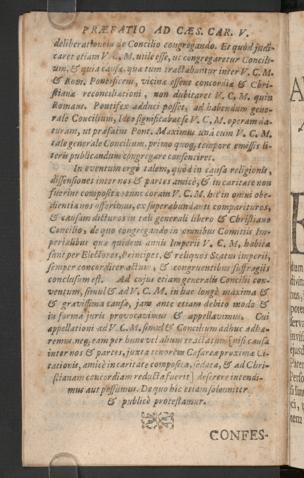 PRÆFATIO AD CÆS. CAR. V.
deliberationem de Concilio congregando. Et quòd judi-
caret etiam V. C. M. utile esse, ut congregaretur Concili-
um, & quia causæ, quæ tum tractabantur inter V. C. M.
& Rom. Pontificem, vicinæ essent concordiæ & Chri-
stianæ reconciliationi, non dubitaret V. C. M. quin
Romanus Pontifex adduci posset, ad habendum gene-
rale Concilium, ideò significabat se V. C. M. operam da-
turam, ut præfatus Pont. Maximus unà cum V. C. M.
tale generale Concilium, primo quoq; tempore emissis li-
teris publicandum congregare consentiret.
In eventum ergò talem, quòd in causa religionis,
dissensiones inter nos & partes amicè, & in caritate non
fuerint compositæ, tunc coram V. C. M. hic in omni obe-
dientia nos offerimus, ex superabundanti comparituros,
& causam dicturos in tali generali libero & Christiano
Concilio, de quo congregando in omnibus Comitiis Im-
perialibus quæ quidem annis Imperii V. C. M. habita
sunt per Electores, Principes, & reliquos Status imperii,
semper concorditer actum, & congruentibus suffragiis
conclusum est. Ad cujus etiam generalis Concilii con-
ventum, simul & ad V. C. M. in hac longè maxima &
& gravissima causa, jam ante etiam debito modo &
in forma juris provocavimus & appellavimus. Cui
appellationi ad V. C. M. simul & Concilium adhuc adhæ-
remus, neq; eam per hunc vel alium tractatum (nisi causa
inter nos & partes, juxta tenorem Cæsareæ proximæ Ci-
tationis, amicè in caritate composita, sedata, & ad Chri-
stianam concordiam reducta fuerit) deserere intendi-
mus aut possumus. De quo hîc etiam solenniter
& publicè protestamur.
CONFES-